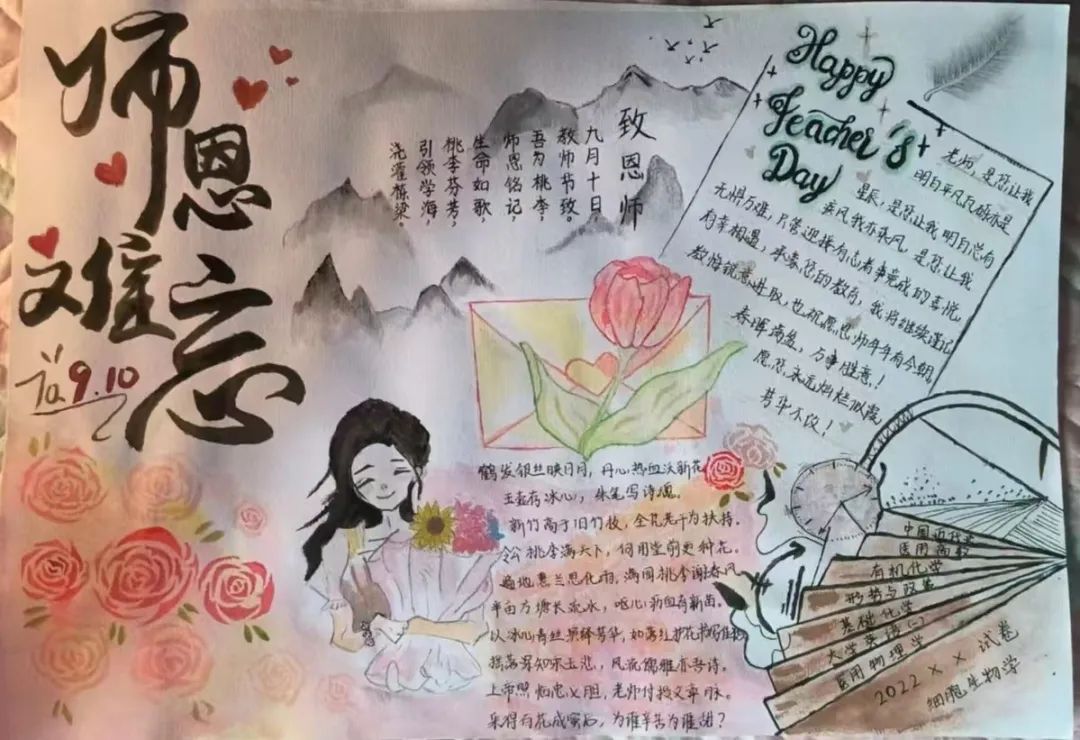 师恩难忘
9.10
致恩师
九月十日,
教师节致。
吾为桃李,
师恩铭记,
生命如歌,
桃李芬芳,
引领学海,
浇灌栋梁。
Happy
Teacher's
Day
老师,是您让我
明白平凡瓦砾亦是
星辰,是您让我明白总有
乘风我亦乘风,是您让我
无惧万难,只管迎接有志者事竟成的喜悦,
有幸相遇,承蒙您的教育,我将继续谨记
教悔锐意进取,也祝愿恩师年年有今朝,
春晖满盈,万事胜意!
愿您永远灿烂似霞
芳华不改!
鹤发银丝映日月,丹心热血沃新花
玉壶存冰心,朱笔写诗魂。
新竹高于旧竹枝,全凭老干为扶持。
令公桃李满天下,何用堂前更种花。
遍地惠兰思化雨,满园桃李谢春风
半亩方塘长流水,呕心沥血育新苗。
以冰心青丝
摇落深知宋玉悲,风流儒雅亦吾师。
老师付授文章
采得百花成蜜后,为谁辛苦为谁甜?
中国近代史
医用高数
有机化学
形势与政策
基础化学
大学英语(一)
医用物理学
2022 x x 试卷
细胞生物学